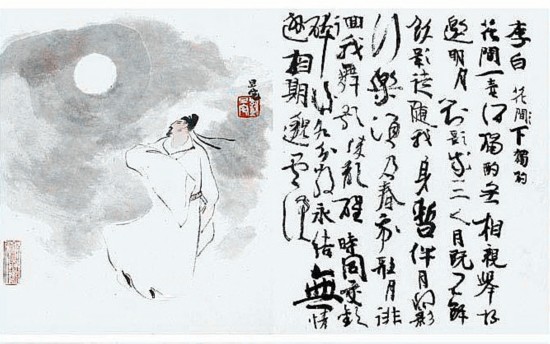 李白 花間下獨酌
花間一壺酒獨酌無相親舉杯
邀明月對影成三人月既不解
飲影徒隨我身暫伴月將影
行樂須及春我歌月徘
徊我舞影亂醒時同交歡
醉後各分散永結無情
遊相期邈雲漢